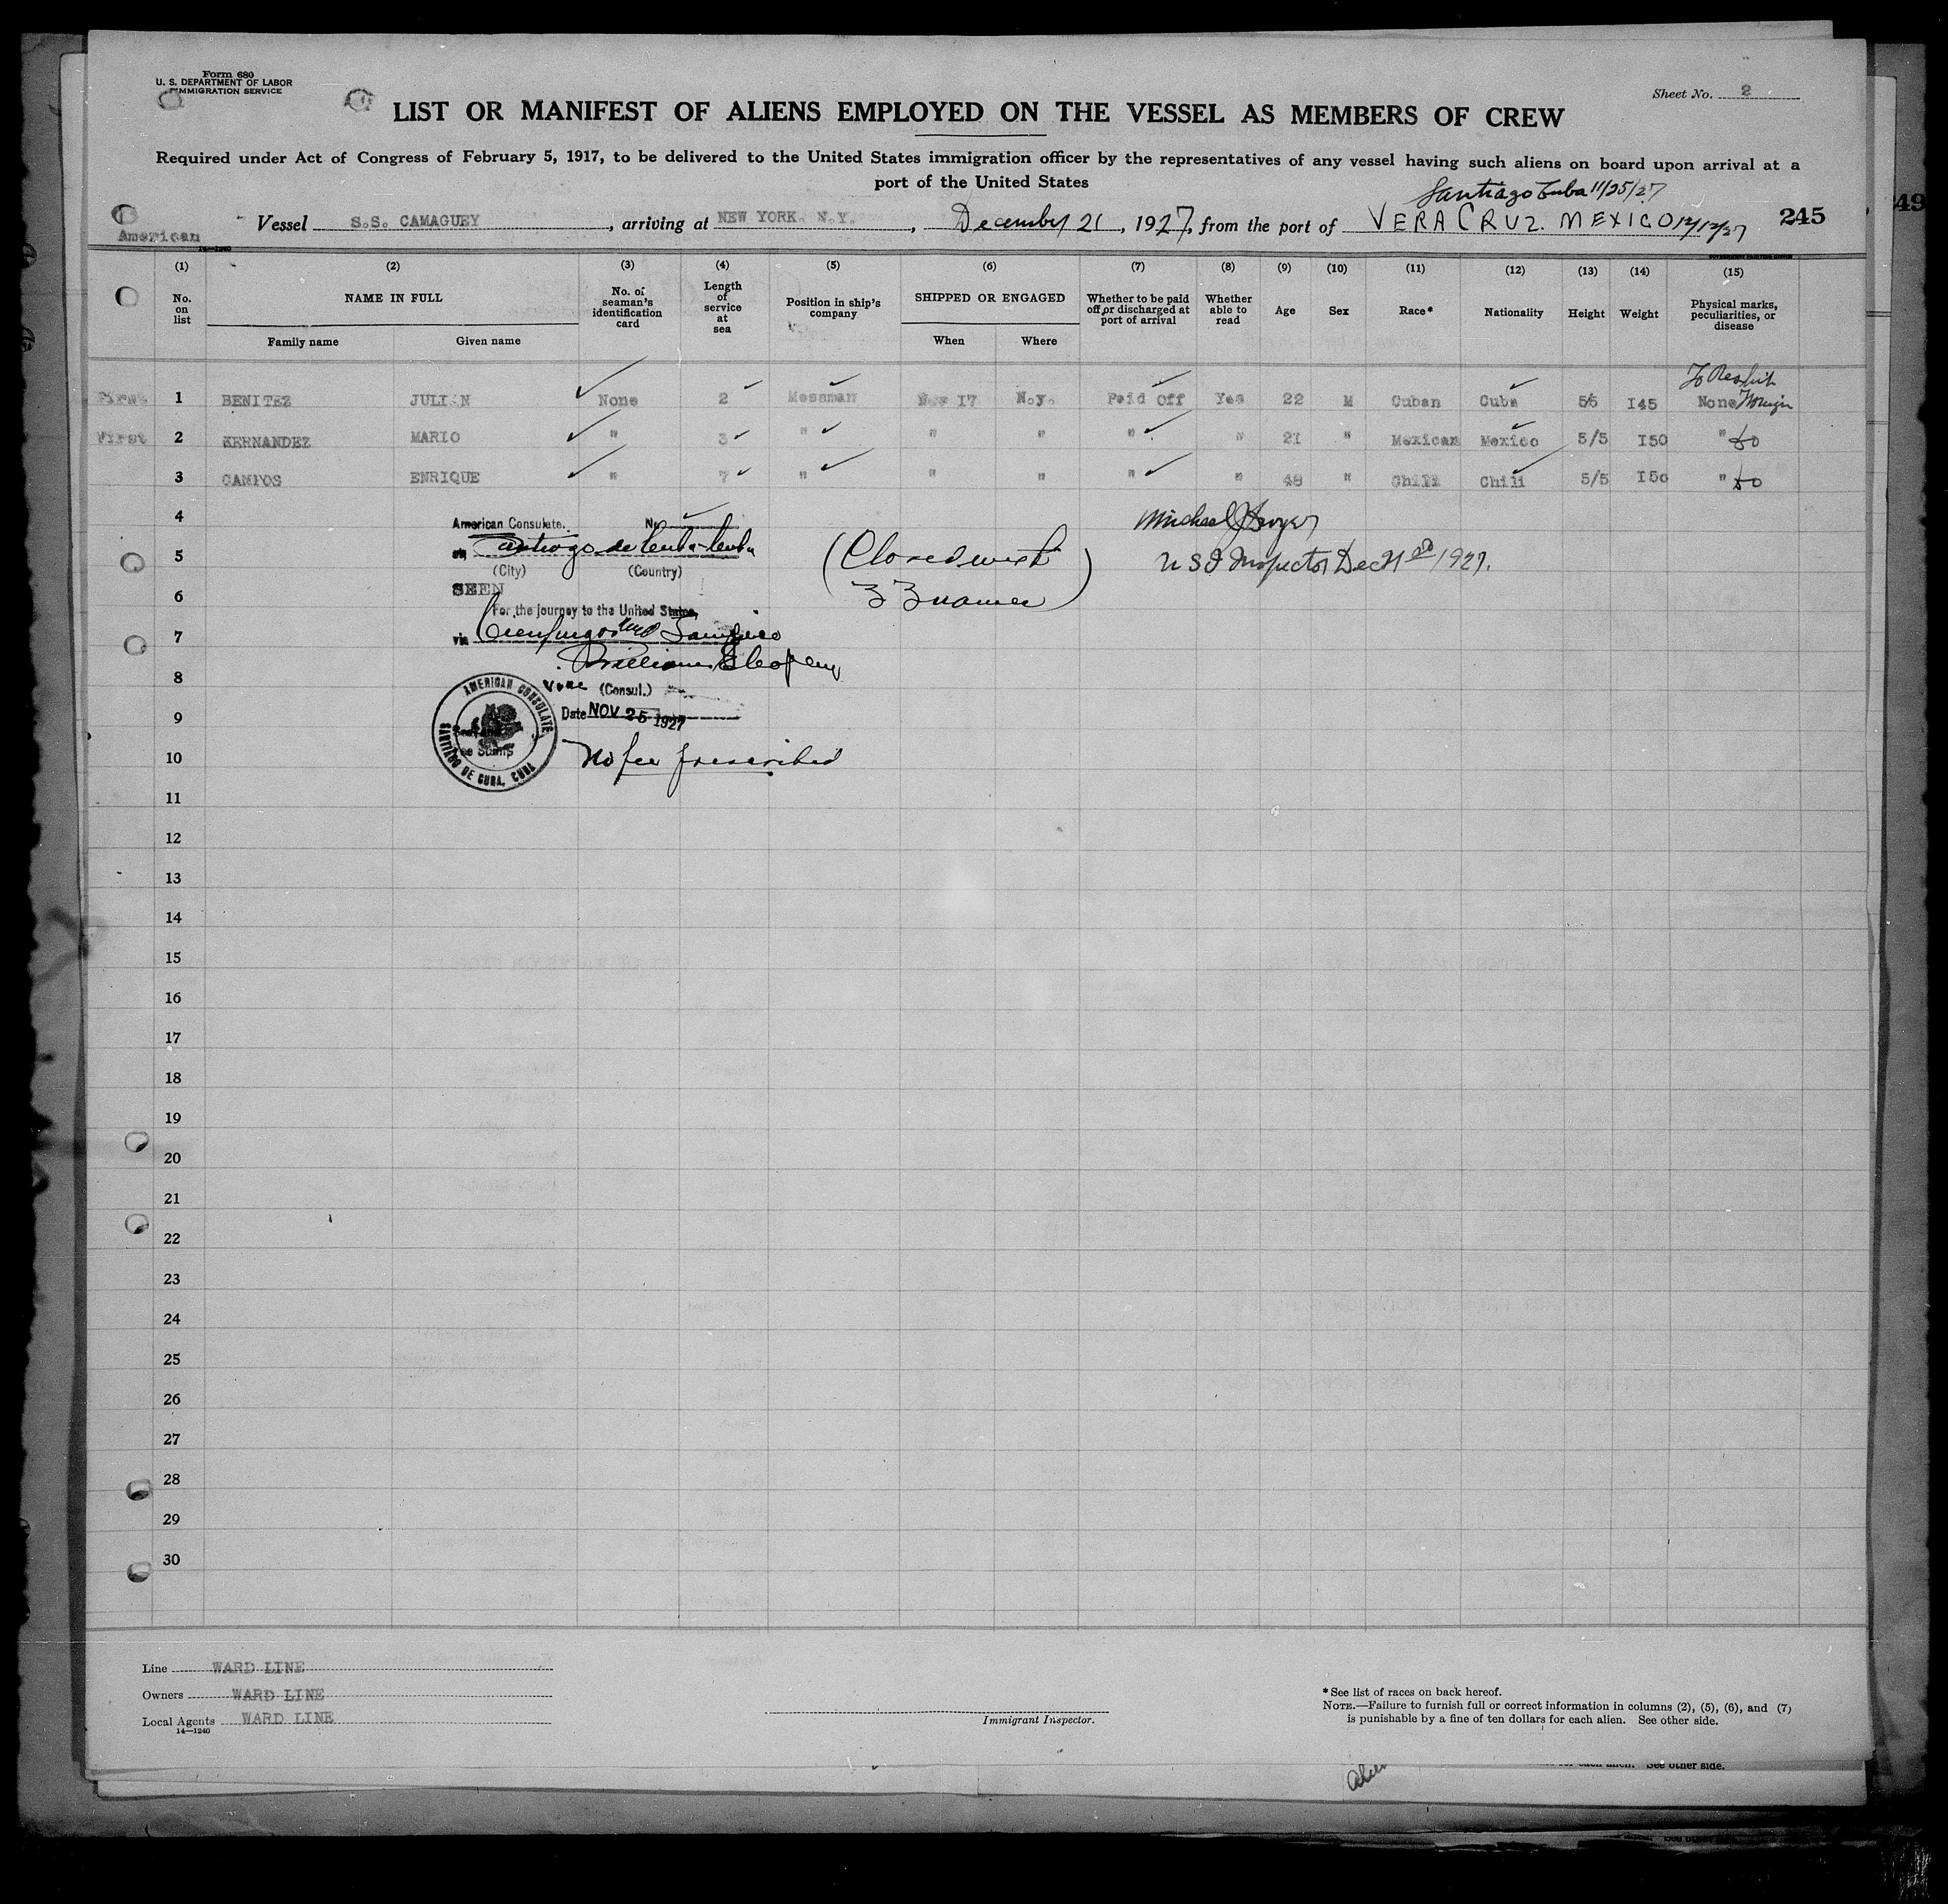 Form 680
U. S. DEPARTMENT OF LABOR
IMMIGRATION SERVICE
Sheet No. 2
LIST OR MANIFEST OF ALIENS EMPLOYED ON THE VESSEL AS MEMBERS OF CREW
Required under Act of Congress of February 5, 1917, to be delivered to the United States immigration officer by the representatives of any vessel having such aliens on board upon arrival at a
port of the United States
Santiago Cuba 11/25/27
Vessel S.S. CAMAGUEY, arriving at NEW YORK. N.Y., December 21, 1927, from the port of VERA CRUZ. MEXICO 12/12/27
245
49
American
(1) (2) (3) (4) (5) (6) (7) (8) (9) (10) (11) (12) (13) (14) (15)
No. on list NAME IN FULL No. of seaman's identification card Length of service at sea Position in ship's company SHIPPED OR ENGAGED Whether to be paid off or discharged at port of arrival Whether able to read Age Sex Race* Nationality Height Weight Physical marks, peculiarities, or disease
Family name Given name When Where
First 1 BENITEZ JULIAN None 2 Messman Nov 17 N.Y. Paid Off Yes 22 M Cuban Cuba 56 145 None
First 2 HERNANDEZ MARIO " 3 " " " " " 21 " Mexican Mexico 5/5 150 "
3 CAMPOS ENRIQUE " 7 " " " " " 48 " Chili Chili 5/5 150 "
4
American Consulate. No.
5
Santiago de Cuba Cuba
(City) (Country)
(Closed with
U S I Inspector Dec 21 1927.
6
SEEN
33 names)
For the journey to the United States,
7
via Cienfuegos and Tampico
8
William
Vice (Consul.)
9
Date NOV 25 1927
AMERICAN CONSULATE
SANTIAGO DE CUBA, CUBA
10
No fee prescribed
11
12
13
14
15
16
17
18
19
20
21
22
23
24
25
26
27
28
29
30
Line WARD LINE
Owners WARD LINE
Local Agents WARD LINE
14—1240
Immigrant Inspector.
* See list of races on back hereof.
NOTE.—Failure to furnish full or correct information in columns (2), (5), (6), and (7)
is punishable by a fine of ten dollars for each alien. See other side.
See other side.